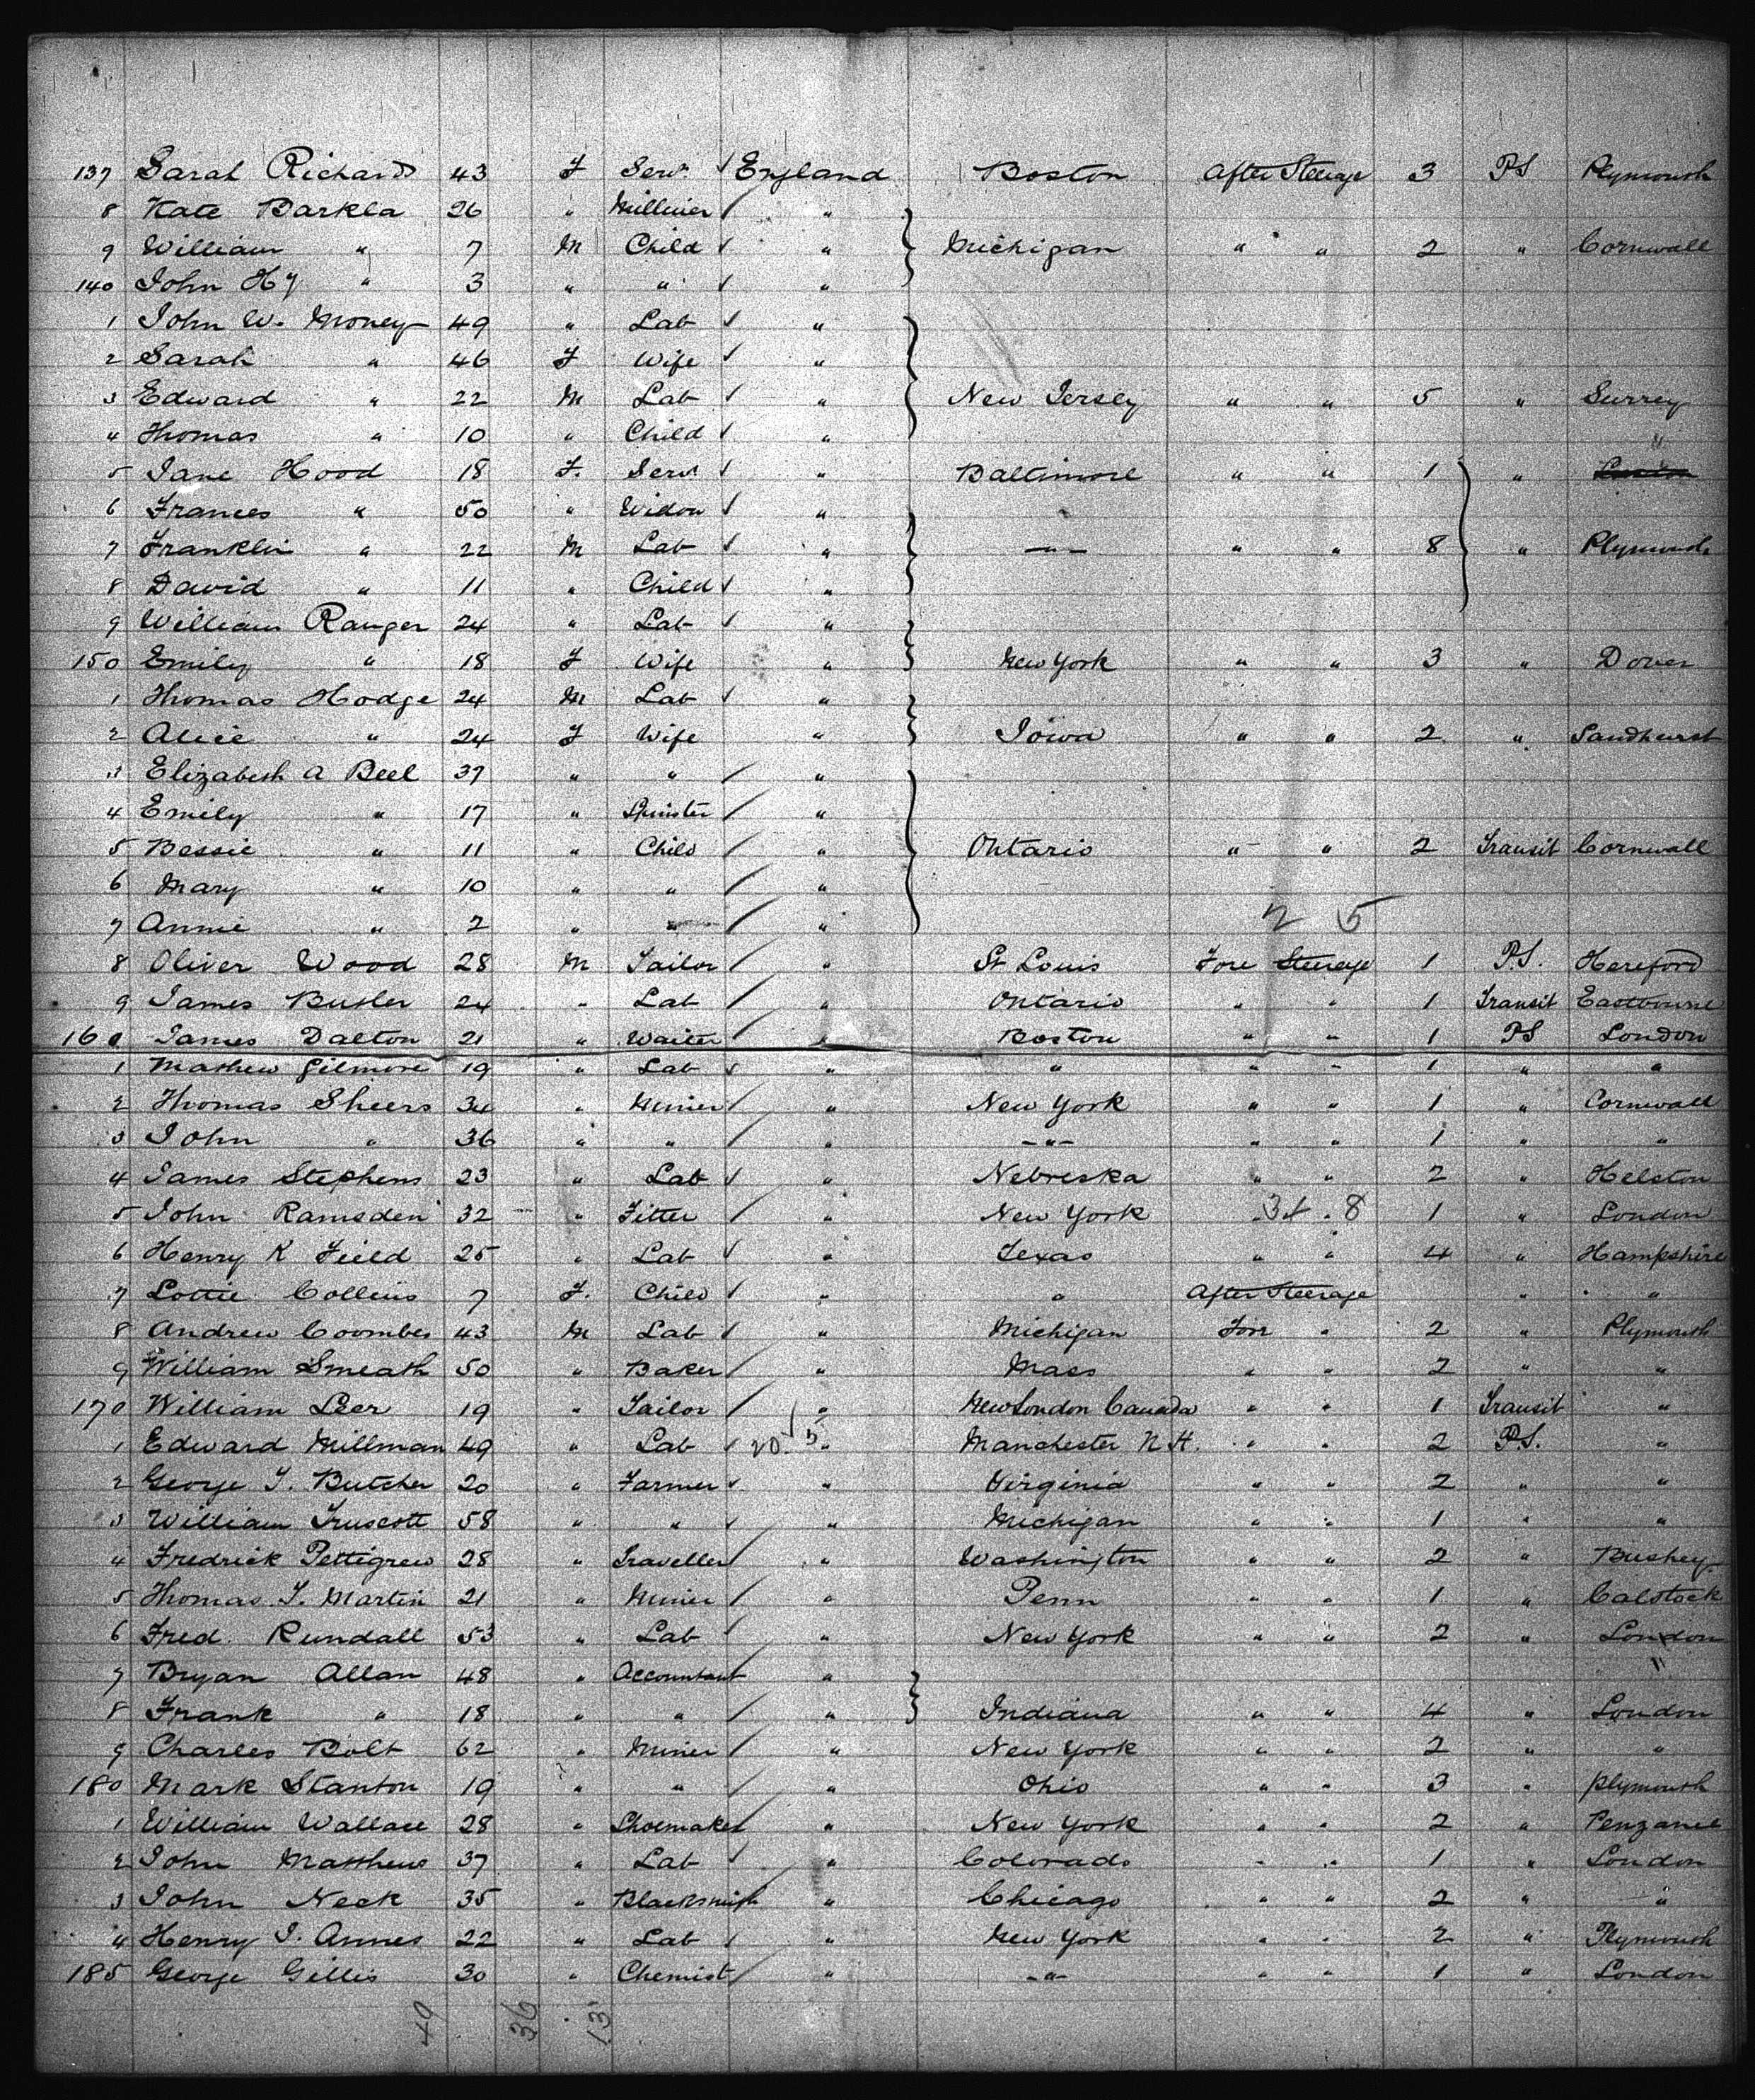 137 Sarah Richards 43 F Serv. England Boston After Steerage 3 PS Plymouth
8 Kate Barkla 26 " Milliner "
9 William " 7 M Child " Michigan " " 2 " Cornwall
140 John Hy " 3 " " "
1 John W. Money 49 " Lab "
2 Sarah " 46 F Wife "
3 Edward " 22 M Lab " New Jersey " " 5 " Surrey
4 Thomas " 10 " Child " "
5 Jane Hood 18 F. Serv. " Baltimore " " 1 "
6 Frances " 50 " Widow "
7 Franklin " 22 M Lab " -"- " " 8 " Plymouth
8 David " 11 " Child "
9 William Ranger 24 " Lab "
150 Emily " 18 F Wife " New York " " 3 " Dover
1 Thomas Hodge 24 M Lab "
2 Alice " 24 F Wife " Iowa " " 2 " Sandhurst
3 Elizabeth A Beel 37 " " "
4 Emily " 17 " Spinster "
5 Bessie " 11 " Child " Ontario " " 2 Transit Cornwall
6 Mary " 10 " " "
7 Annie " 2 " " " 2 5
8 Oliver Wood 28 M Tailor " St Louis Fore Steerage 1 P.S. Hereford
9 James Butler 24 " Lab " Ontario " " 1 Transit Eastbourne
160 James Dalton 21 " Waiter " Boston " " 1 PS London
1 Mathew Gilmore 19 " Lab " " " " 1 " "
2 Thomas Sheers 34 " Miner " New York " " 1 " Cornwall
3 John " 36 " " " -"- " " 1 " "
4 James Stephens 23 " Lab " Nebreska " " 2 " Helston
5 John Ramsden 32 " Fitter " New York 34 8 1 " London
6 Henry K Field 25 " Lab " Texas " " 4 " Hampshire
7 Lottie Collins 7 F. Child " " After Steerage " "
8 Andrew Coombes 43 M Lab " Michigan Fore " 2 " Plymouth
9 William Smeath 50 " Baker " Mass " " 2 " "
170 William Leer 19 " Tailor " New London Canada " " 1 Transit "
1 Edward Millman 49 " Lab 20. 5 " Manchester N.H. " " 2 P.S. "
2 George T. Butcher 20 " Farmer " Virginia " " 2 " "
3 William Truscott 58 " " " Michigan " " 1 " "
4 Fredrick Pettigrew 28 " Traveller " Washington " " 2 " Bushey
5 Thomas T. Martin 21 " Miner " Penn " " 1 " Calstock
6 Fred. Rundall 53 " Lab " New York " " 2 " London
7 Bryan Allan 48 " Accountant " "
8 Frank " 18 " " " Indiana " " 4 " London
9 Charles Bolt 62 " Miner " New York " " 2 " "
180 Mark Stanton 19 " " " Ohio " " 3 " Plymouth
1 William Wallace 28 " Shoemaker " New York " " 2 " Penzance
2 John Matthews 37 " Lab " Colorado " " 1 " London
3 John Neck 35 " Blacksmith " Chicago " " 2 " "
4 Henry J. Annes 22 " Lab " New York " " 2 " Plymouth
185 George Gillis 30 " Chemist " -"- " " 1 " London
49 36 13